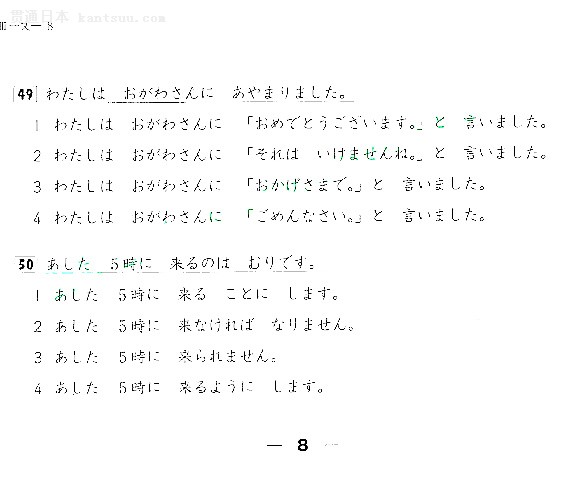 贯通日本 kantsuu.com
49 わたしは おがわさんに あやまりました。
1 わたしは おがわさんに 「おめでとうございます。」と 言いました。
2 わたしは おがわさんに 「それは いけませんね。」と 言いました。
3 わたしは おがわさんに 「おかげさまで。」と 言いました。
4 わたしは おがわさんに 「ごめんなさい。」と 言いました。
50 あした 5時に 来るのは むりです。
1 あした 5時に 来る ことに します。
2 あした 5時に 来なければ なりません。
3 あした 5時に 来られません。
4 あした 5時に 来るように します。
— 8 —